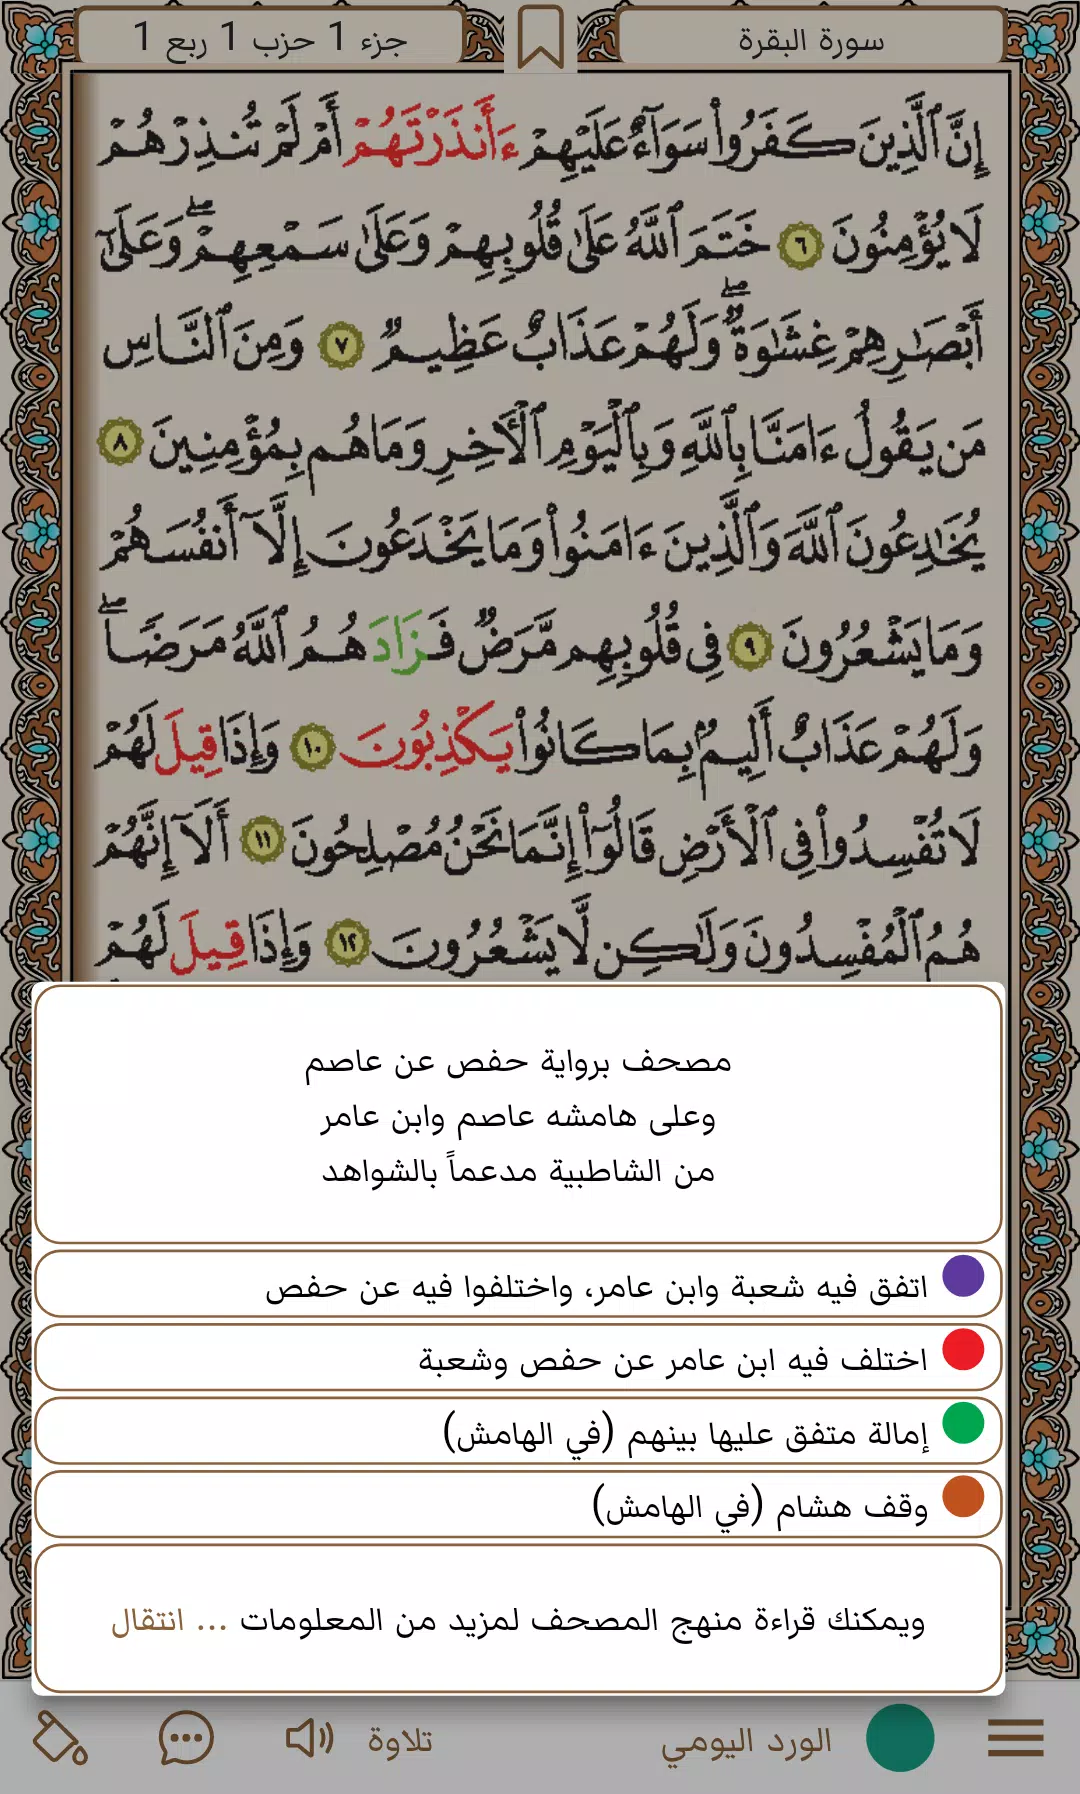 سورة البقرة
جزء 1 حزب 1 ربع 1
إِنَّ ٱلَّذِينَ كَفَرُوا۟ سَوَآءٌ عَلَيْهِمْ ءَأَنذَرْتَهُمْ أَمْ لَمْ تُنذِرْهُمْ
لَا يُؤْمِنُونَ ٦ خَتَمَ ٱللَّهُ عَلَىٰ قُلُوبِهِمْ وَعَلَىٰ سَمْعِهِمْ ۖ وَعَلَىٰٓ
أَبْصَـٰرِهِمْ غِشَـٰوَةٌ ۖ وَلَهُمْ عَذَابٌ عَظِيمٌ ٧ وَمِنَ ٱلنَّاسِ
مَن يَقُولُ ءَامَنَّا بِٱللَّهِ وَبِٱلْيَوْمِ ٱلْأَخِرِ وَمَا هُم بِمُؤْمِنِينَ ٨
يُخَـٰدِعُونَ ٱللَّهَ وَٱلَّذِينَ ءَامَنُوا۟ وَمَا يَخْدَعُونَ إِلَّآ أَنفُسَهُمْ
وَمَا يَشْعُرُونَ ٩ فِى قُلُوبِهِم مَّرَضٌ فَزَادَهُمُ ٱللَّهُ مَرَضًا ۖ
وَلَهُمْ عَذَابٌ أَلِيمٌۢ بِمَا كَانُوا۟ يَكْذِبُونَ ١٠ وَإِذَا قِيلَ لَهُمْ
لَا تُفْسِدُوا۟ فِى ٱلْأَرْضِ قَالُوٓا۟ إِنَّمَا نَحْنُ مُصْلِحُونَ ١١ أَلَآ إِنَّهُمْ
هُمُ ٱلْمُفْسِدُونَ وَلَـٰكِن لَّا يَشْعُرُونَ ١٢ وَإِذَا قِيلَ لَهُمْ
مصحف برواية حفص عن عاصم
وعلى هامشه عاصم وابن عامر
من الشاطبية مدعماً بالشواهد
اتفق فيه شعبة وابن عامر، واختلفوا فيه عن حفص
اختلف فيه ابن عامر عن حفص وشعبة
إمالة متفق عليها بينهم (في الهامش)
وقف هشام (في الهامش)
ويمكنك قراءة منهج المصحف لمزيد من المعلومات ... انتقال
الورد اليومي
تلاوة